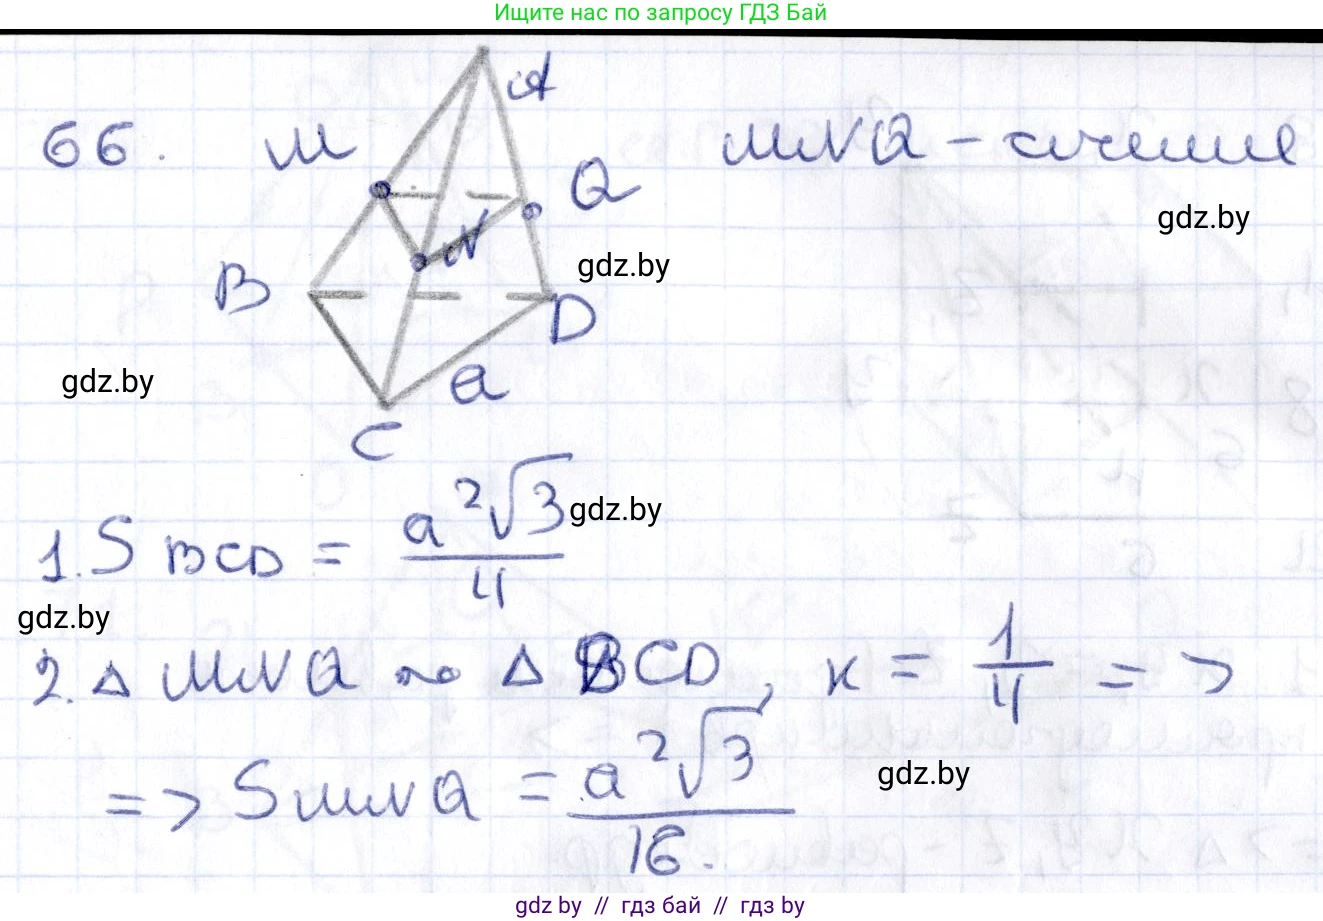 Ищите нас по запросу ГДЗ Бай
A
66. M
MNQ - сечение
Q
gdz.by
N
gdz.by
B
D
gdz.by
a
C
1. S BCD = a²√3/4
gdz.by
gdz.by
2. Δ MNQ ~ Δ BCD, к = 1/4 =>
=> S MNQ = a²√3/16.
gdz.by
gdz.by // гдз бай // гдз by